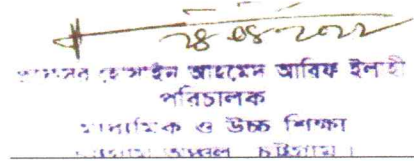 28-08-2022
হোসাইন আহমেদ আরিফ ইলাহী
পরিচালক
মাধ্যমিক ও উচ্চ শিক্ষা
অঞ্চল চট্টগ্রাম।